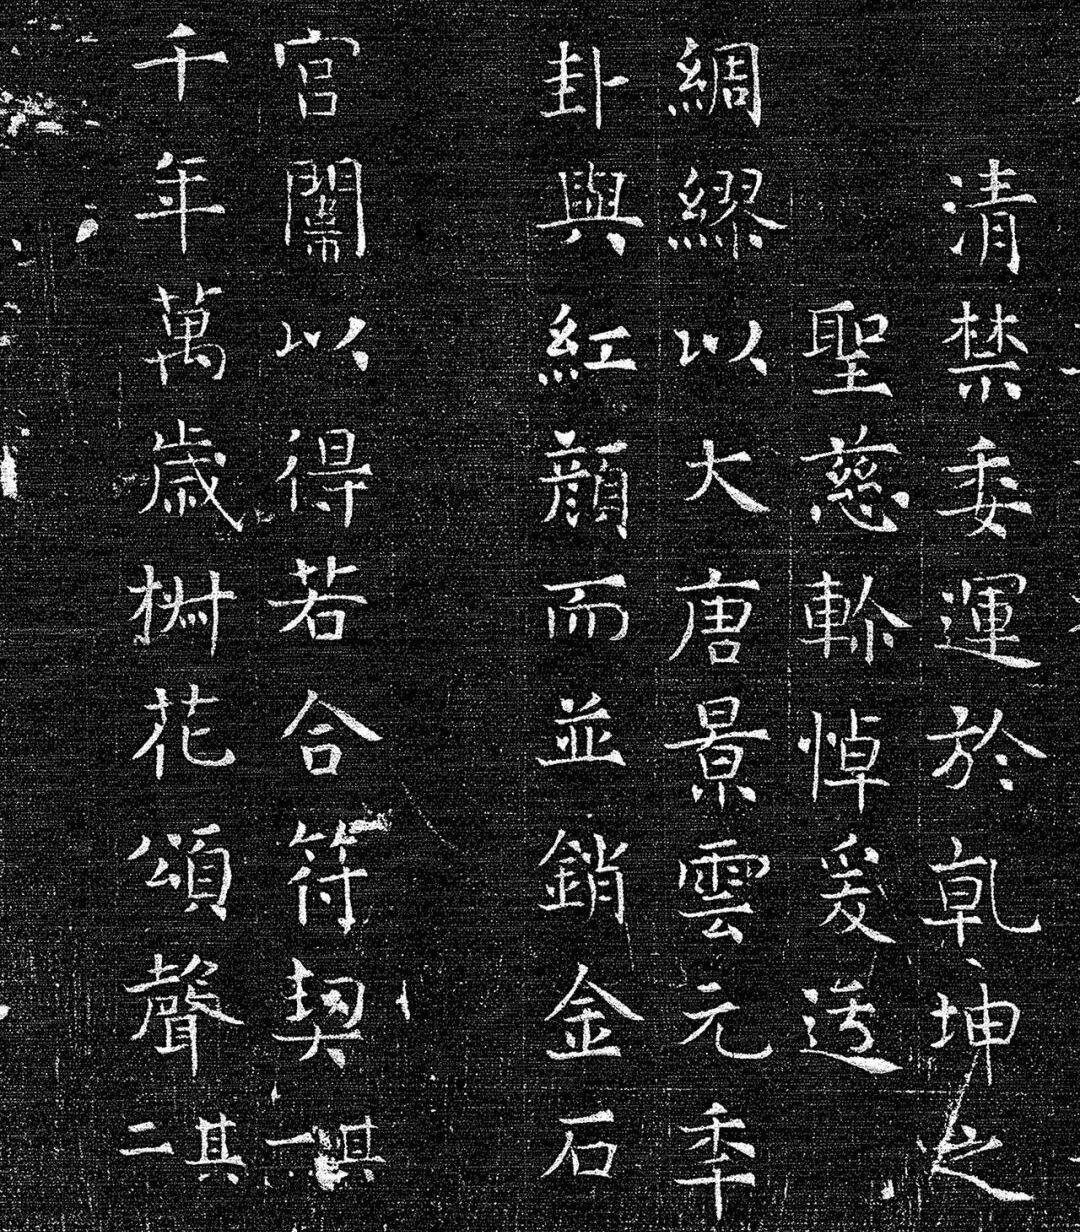 清禁委運於乹坤之
聖慈軫悼爰
綢繆以大唐景雲元秊
卦與紅顏而並銷金石
宮闈以得若合符契其一
千年萬歲椒花頌聲其二